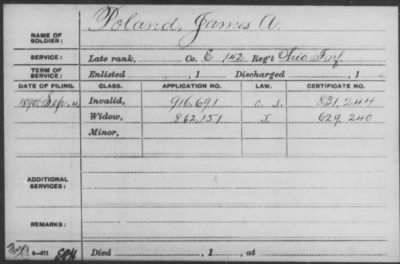 Poland, James A.
NAME OF SOLDIER:
SERVICE: Late rank, Co. E 142 Reg't Ohio Inf.
TERM OF SERVICE: Enlisted , 1 Discharged , 1
DATE OF FILING. CLASS. APPLICATION NO. LAW. CERTIFICATE NO.
1890 Sep. Invalid, 916,691 831,244
Widow, 862,151 629,240
Minor,
ADDITIONAL SERVICES:
REMARKS:
Died , 1 , at